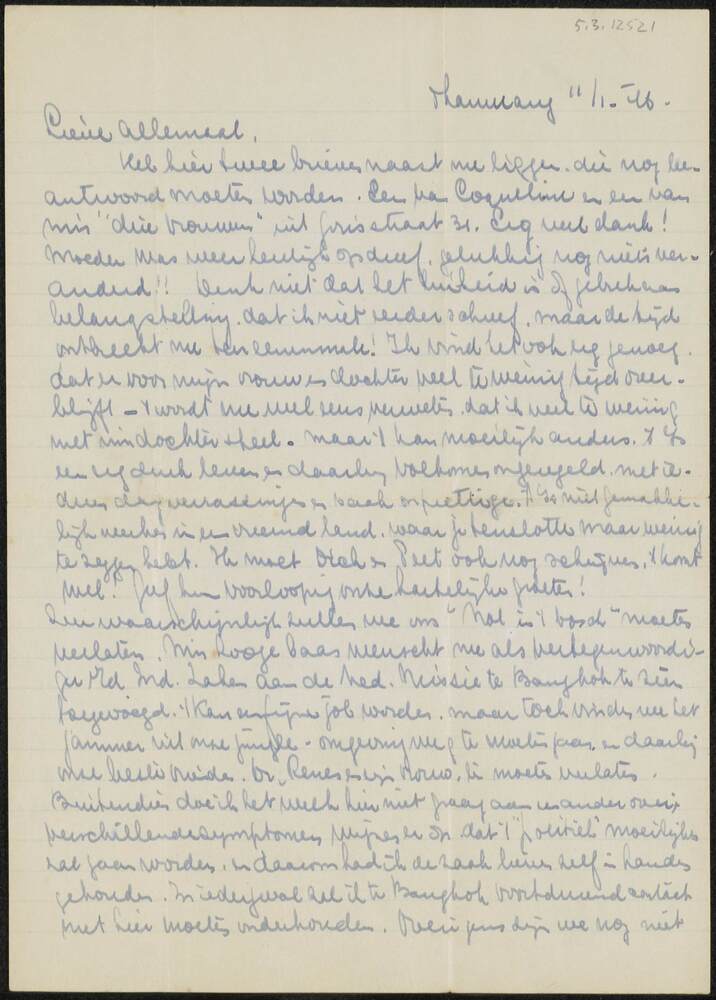 5.3.12521
Thamuang 11/1-'46.
Lieve Allemaal,
Heb hier twee brieven naast me liggen, die nog be-
antwoord moeten worden. Een van Coqueline en een van
mijn "drie vrouwen" uit Grisstraat 31. Erg veel dank!
Moeder was weer heerlijk op dreef, gelukkig nog niets ver-
anderd!! Denk niet dat het luiheid is of gebrek aan
belangstelling, dat ik niet eerder schreef, maar de tijd
ontbreekt me ten eenenmale! Ik vind het ook erg genoeg,
dat er voor mijn vrouw en dochter veel te weinig tijd over-
blijft - 't wordt me wel eens verweten, dat ik veel te weinig
met mijn dochter speel. Maar 't kan moeilijk anders. 't Is
een erg druk leven en daarbij volkomen ongeregeld, met ie-
dere dag verrassingen en vaak onprettige. 't Is niet gemakke-
lijk werken in een vreemd land, waar je tenslotte maar weinig
te zeggen hebt. Ik moet Dick en Peet ook nog schrijven, 't komt
wel! Geef hen voorloopig onze hartelijke groeten!
Zeer waarschijnlijk zullen we ons "Hol in 't bosch" moeten
verlaten. Mijn hooge baas wenscht me als vertegenwoordi-
ger v/d. Ind. Zaken aan de Ned. Missie te Bangkok te zien
toegevoegd. 't Kan een fijne job worden, maar toch vinden we het
jammer uit onze jungle-omgeving weg te moeten gaan, en daarbij
onze beste vrienden, Dr. Renes en zijn vrouw, te moeten verlaten.
Buitendien doe ik het werk hier niet graag aan een ander over,
verschillende symptomen wijzen er op dat 't "politiek" moeilijker
zal gaan worden, en daarom had ik de zaak liever zelf in handen
gehouden. In ieder geval zal ik te Bangkok voortdurend contact
met hier moeten onderhouden. Overigens zijn we nog niet